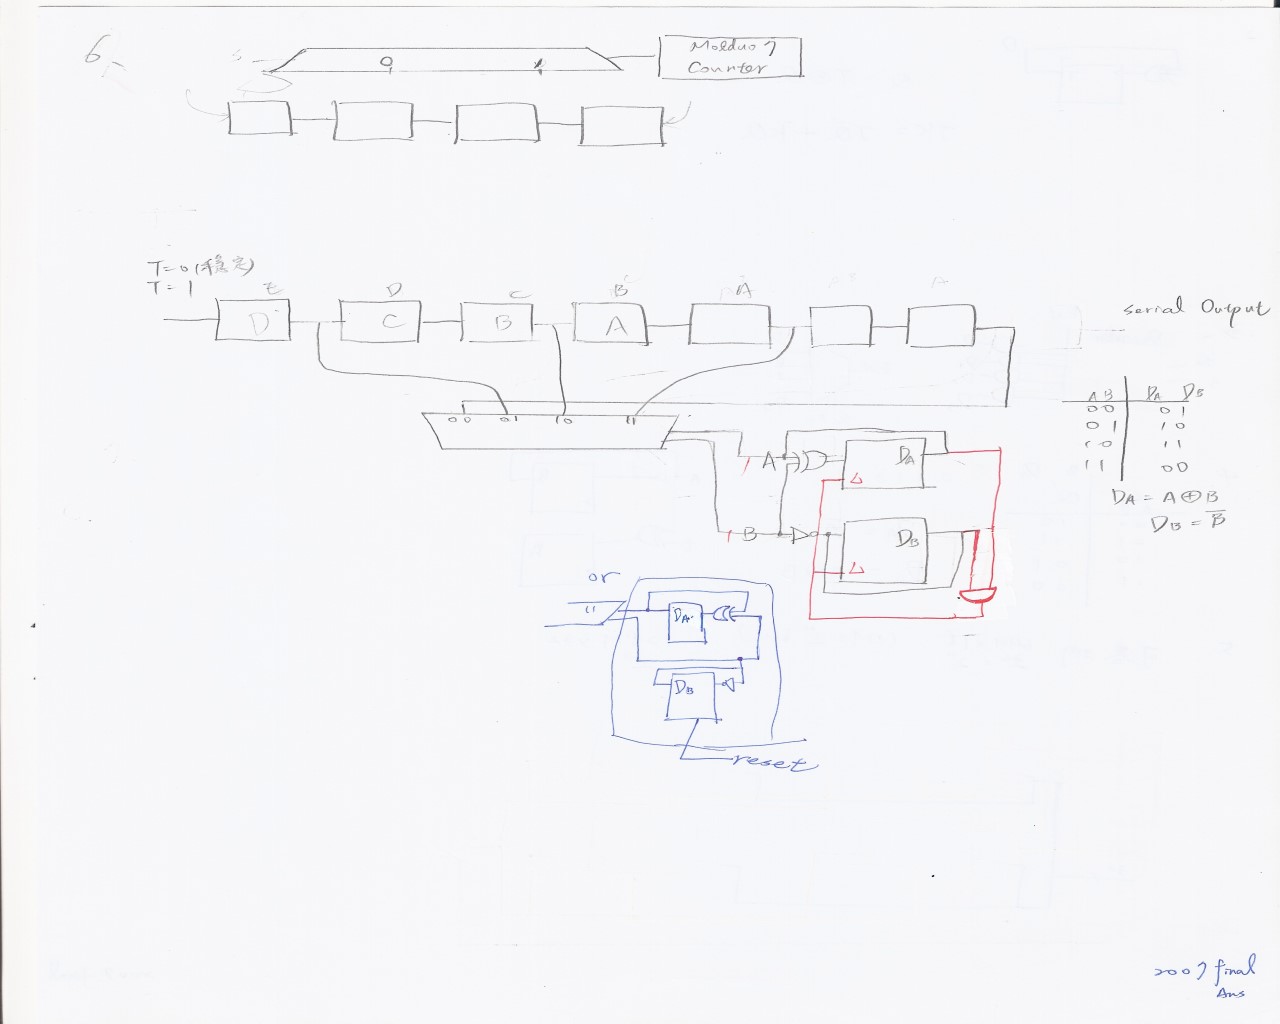 6.
S
Molduo 7
Counter
0
1
T=0 (穩定)
T=1
E
D
C
B
A
D
C
B
A
serial Output
00
01
10
11
A B DA DB
00 01
01 10
10 11
11 00
DA = A⊕B
DB = B̅
A
DA
B
DB
or
11
DA
DB
reset
2007 final
Ans